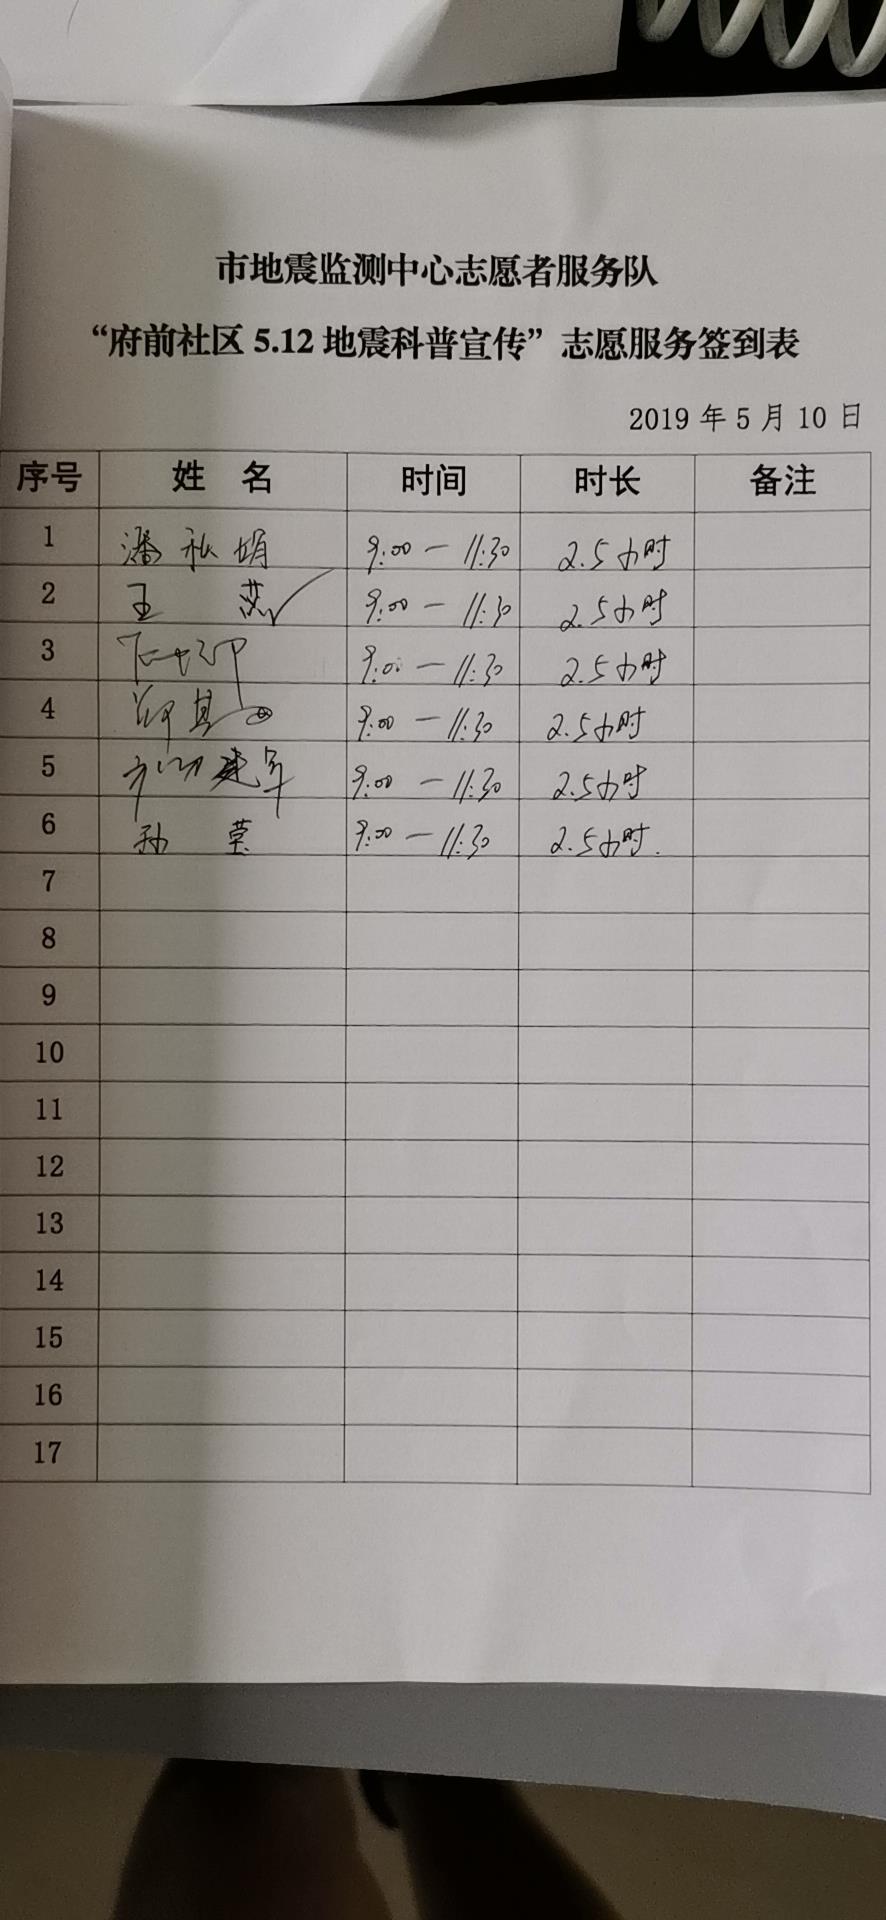 市地震监测中心志愿者服务队
“府前社区 5.12 地震科普宣传”志愿服务签到表
2019 年 5 月 10 日
序号 姓 名 时间 时长 备注
1 潘秋娟 9:00 — 11:30 2.5小时
2 王 燕 9:00 — 11:30 2.5小时
3 9:00 — 11:30 2.5小时
4 9:00 — 11:30 2.5小时
5 建军 9:00 — 11:30 2.5小时
6 孙 莹 9:00 — 11:30 2.5小时.
7
8
9
10
11
12
13
14
15
16
17